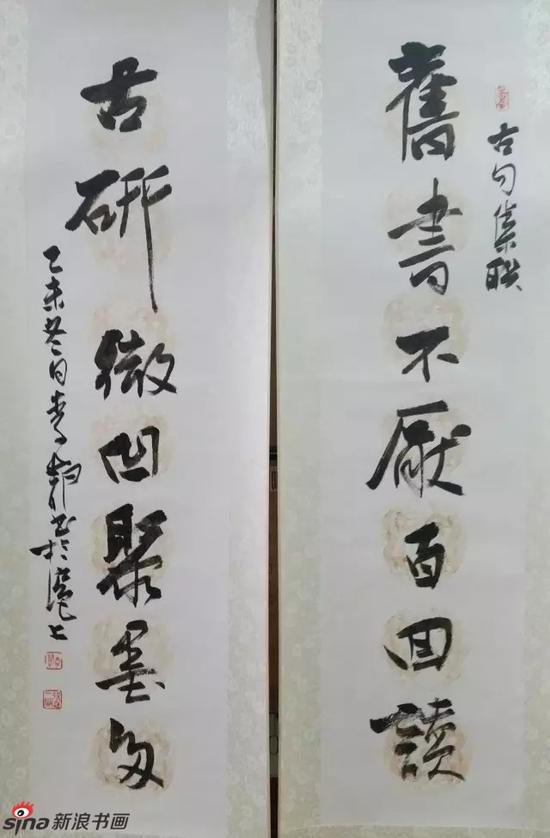 古句集联
舊書不厭百回讀
古研微凹聚墨多
乙未冬日李超書於滬上
sina新浪书画